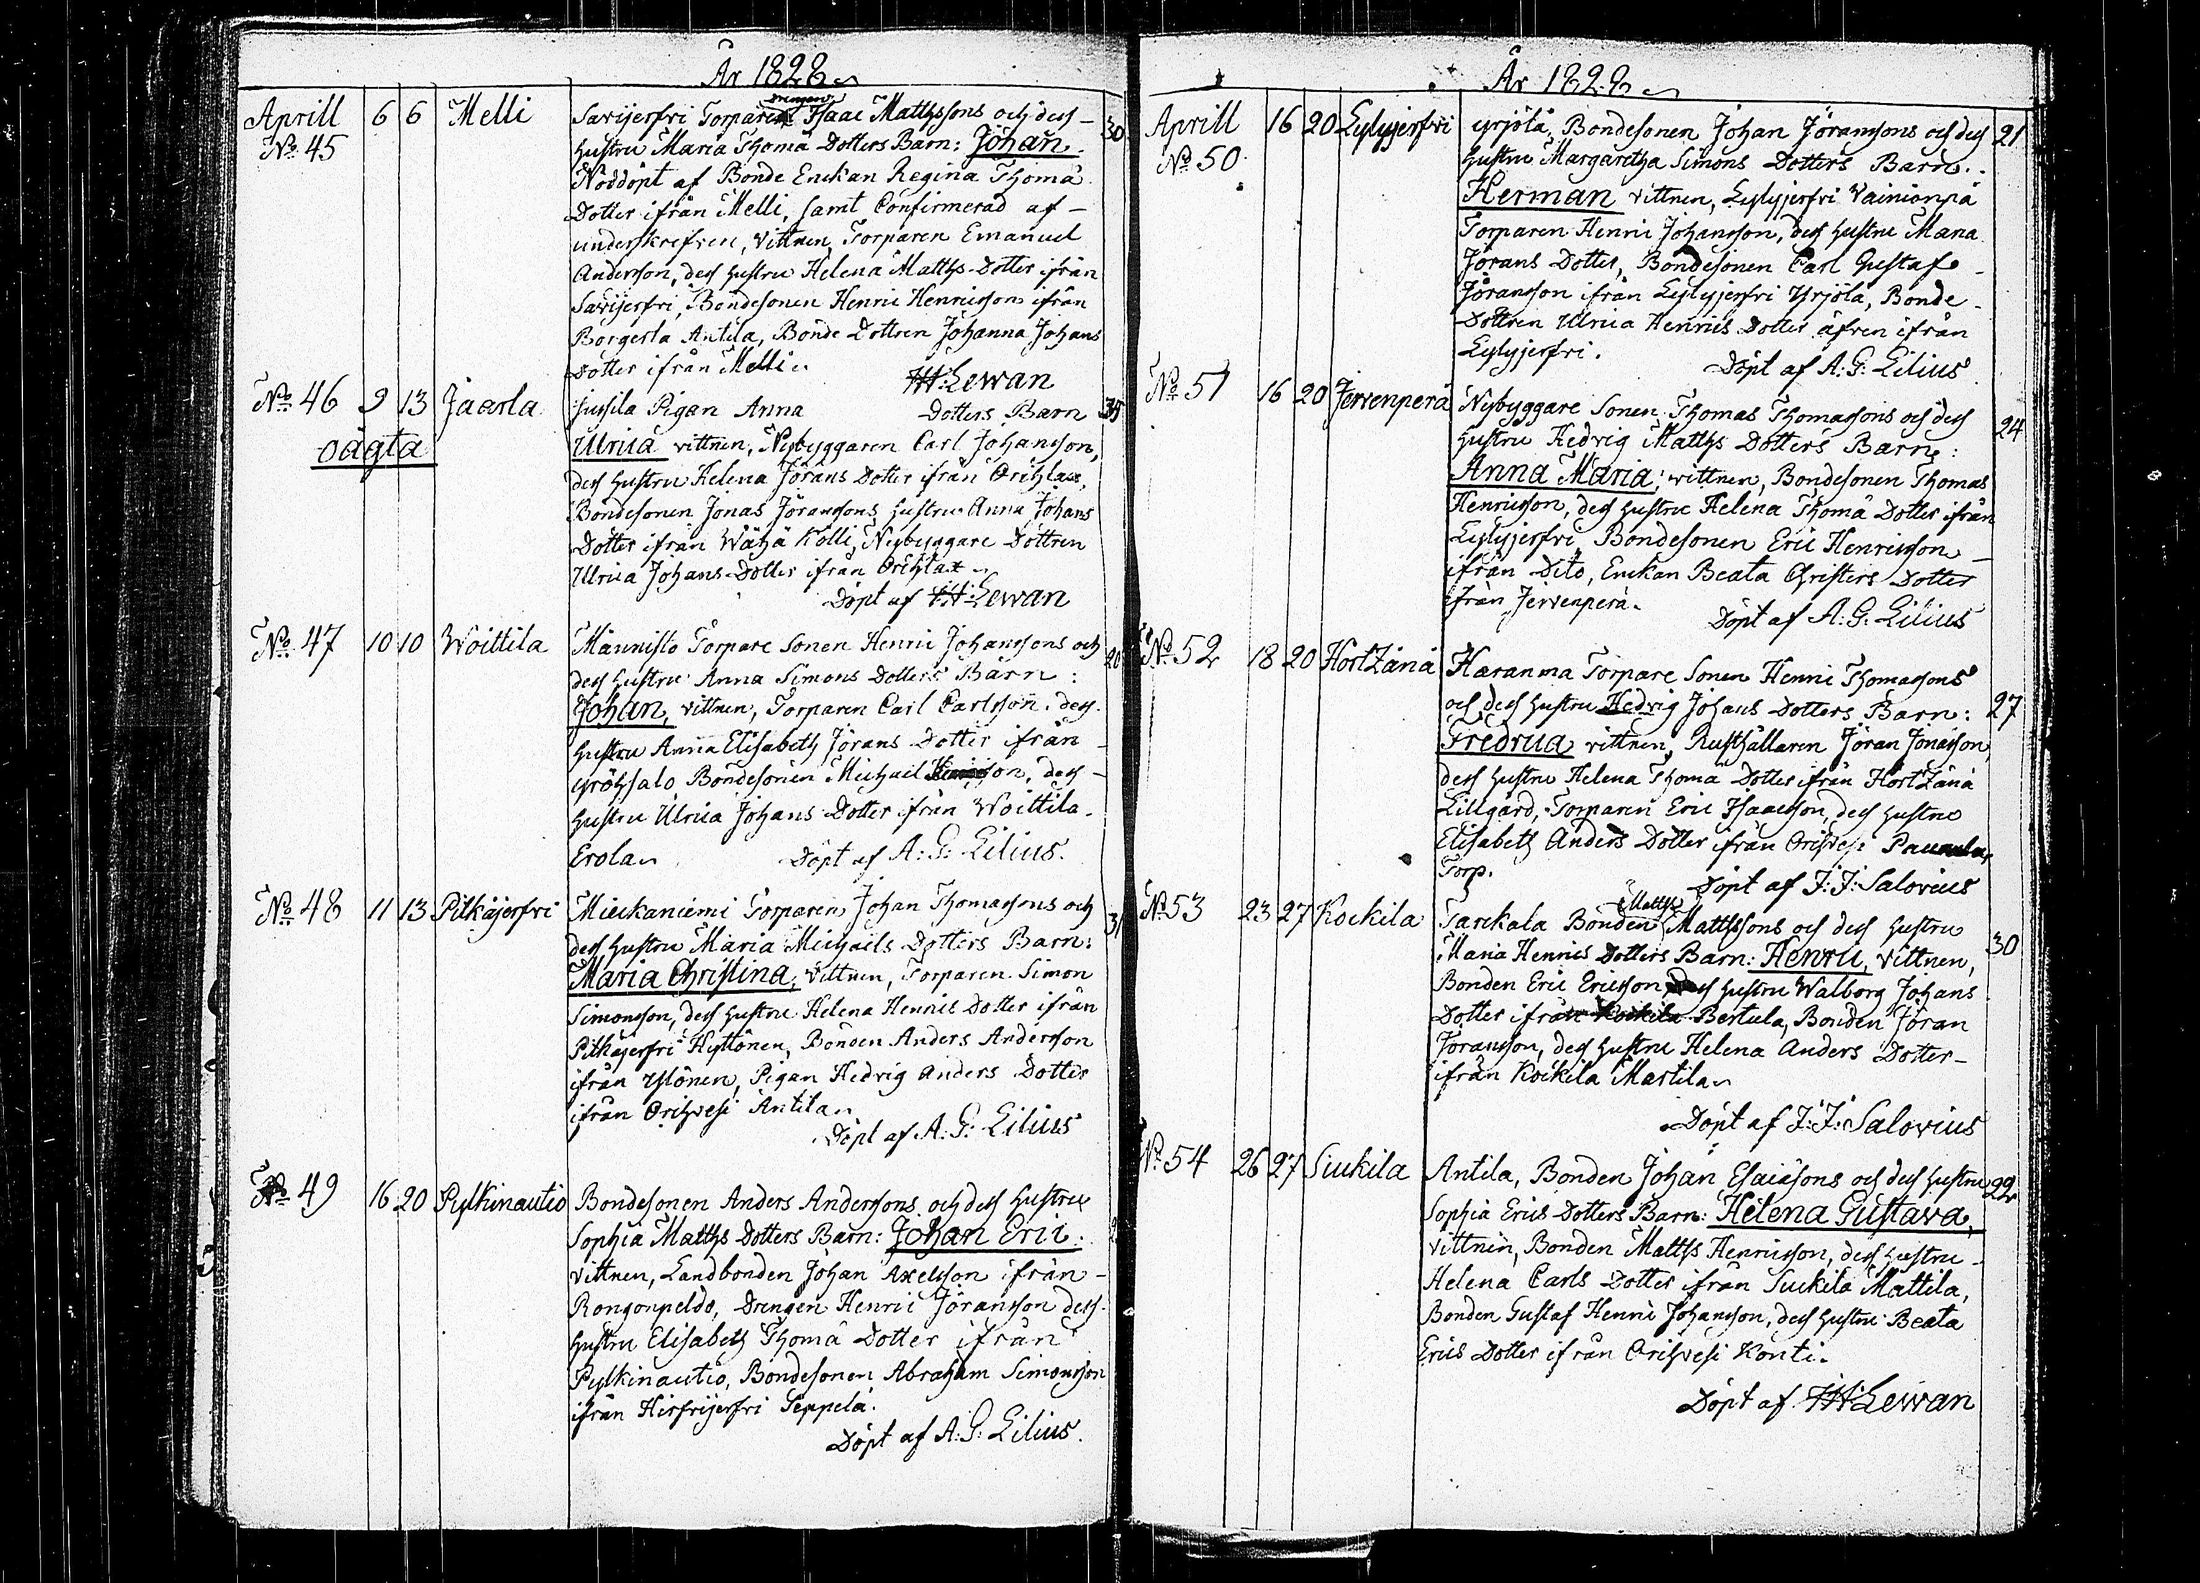 År 1828
Aprill 6 6 Melli Savijerfvi Torparen drengens Isaac Mattssons och dess 30
No 45 hustru Maria Thomä Dotters Barn: Johan
Nöddöpt af Bonde Enckan Regina Thomä
Dotter ifrån Melli, samt Confirmerad af
underskrefven, Vittnen, Torparen Emanuel
Anderson, dess hustru Helena Matths Dotter ifrån
Savijerfvi, Bondesonen Henric Henricsson ifrån
Borgerla Antila, Bonde Dottren Johanna Johans
Dotter ifrån Melli
H:Lewan
No 46 9 13 Jaarla Jussila Pigan Anna Dotters Barn 35
oägta Ulrica vittnen, Nybyggaren Carl Johansson,
dess hustru Helena Jörans Dotter ifrån Orihlax,
Bondesonen Jonas Jöranssons hustru Anna Johans
Dotter ifrån Wähä Kolli, Nybyggare Dottren
Ulrica Johans Dotter ifrån Orihlax
Döpt af H:Lewan
No 47 10 10 Woittila Männistö Torpare Sonen Henric Johanssons och 20
dess hustru Anna Simons Dotters Barn:
Johan, vittnen, Torparen Carl Carlsson, dess
hustru Anna Elisabeth Jörans Dotter ifrån
Yröhsalo, Bondesonen Michail Henricsson, dess
hustru Ulrica Johans Dotter ifrån Woittila
Erola Döpt af A:G:Lilius.
No 48 11 13 Pitkäjerfvi Mieckaniemi Torparens Johan Thomassons och 31
dess hustru Maria Michaels Dotters Barn:
Maria Christina, Vittnen, Torparen Simon
Simonsson, dess hustru Helena Henrics Dotter ifrån
Pitkäjerfvi Hyttönen, Bonden Anders Andersson
ifrån Ylönen, Pigan Hedvig Anders Dotter
ifrån Orihvesi Antila
Döpt af A:G:Lilius
No 49 16 20 Pylkinautio Bondesonen Anders Anderssons och dess hustru
Sophia Matths Dotters Barn: Johan Eric:
Vittnen, Landbonden Johan Axelsson ifrån
Rongonpeldo, Drengen Henric Jöransson dess
hustru Elisabeth Thomä Dotter ifrån
Pylkinautio, Bondesonen Abraham Simonsson
ifrån Hirfvijerfvi Seppelä.
Döpt af A:G:Lilius.
År 1828
Aprill 16 20 Lylyjerfvi Yrjölä, Bondesonen Johan Jöranssons och dess 21
No 50 hustru Margaretha Simons Dotters Barn.
Herman vittnen, Lylyjerfvi Vainionpä
Torparen Henric Johansson, dess hustru Maria
Jörans Dotter, Bondesonen Carl Gustaf
Jöransson ifrån Lylyjerfvi Yrjölä, Bonde
Dottren Ulrica Henrics Dotter äfven ifrån
Lylyjerfvi.
Döpt af A:G:Lilius
No 51 16 20 Jervenperä Nybyggare Sonen Thomas Thomassons och dess 24
hustru Hedvig Matths Dotters Barn:
Anna Maria: vittnen, Bondesonen Thomas
Henricsson, dess hustru Helena Thomä Dotter ifrån
Lylyjerfvi Bondesonen Eric Henricsson
ifrån Dito, Enckan Beata Christers Dotter
ifrån Jervenperä.
Döpt af A:G:Lilius
No 52 18 20 Hortzänä Haranma Torpare Sonen Henric Thomassons
och dess hustru Hedvig Johans Dotters Barn: 27
Fredrica vittnen, Rusthållaren Jöran Jonasson
dess hustru Helena Thomä Dotter ifrån Hortzänä
Lillgård, Torparen Eric Isaacsson, dess hustru
Elisabeth Anders Dotter ifrån Orihvesi
Torp.
Döpt af J:J:Salovius
No 53 23 27 Kockila Tarckala Bonden Matths Mattssons och dess hustru
Maria Henrics Dotters Barn: Henric, vittnen, 30
Bonden Eric Ericsson, dess hustru Walborg Johans
Dotter ifrån Kockila Bertula, Bonden Jöran
Jöransson, dess hustru Helena Anders Dotter
ifrån Kockila Martila
Döpt af J:J:Salovius
No 54 26 27 Siukila Antila, Bonden Johan Esaiasons och dess hustru 22
Sophia Erics Dotters Barn: Helena Gustava,
vittnen, Bonden Matths Henricsson, dess hustru
Helena Carls Dotter ifrån Siukila Mattila,
Bonden Gustaf Henric Johansson, dess hustru Beata
Erics Dotter ifrån Orihvesi Konti.
Döpt af H:Lewan